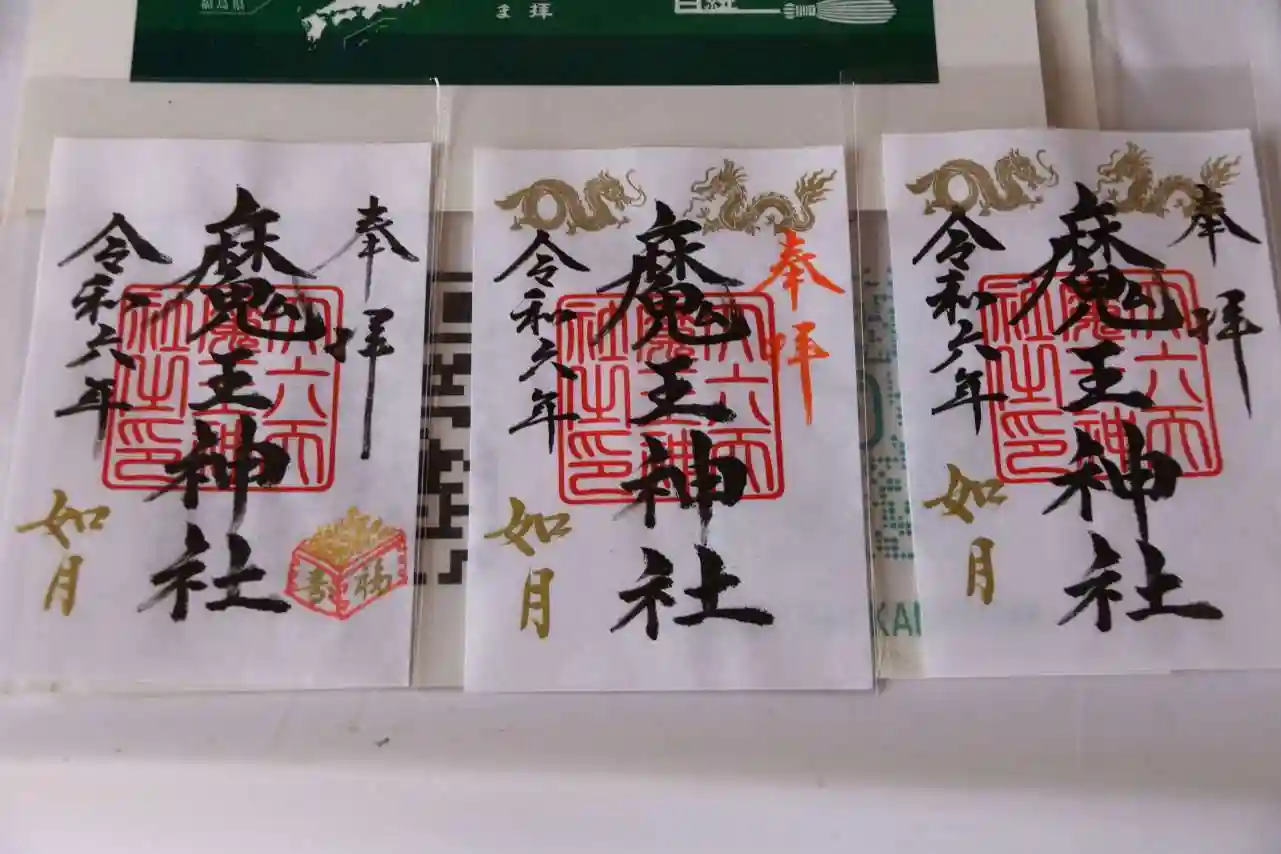 奉拝
魔王神社
令和六年
如月
福
寿
奉拝
魔王神社
令和六年
如月
奉拝
魔王神社
令和六年
如月
KAI